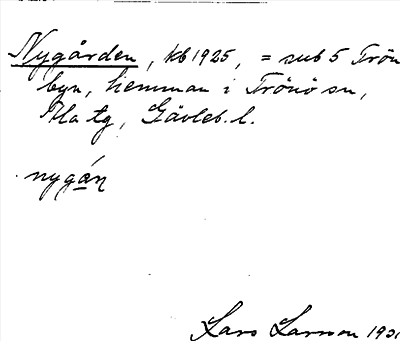 Nygården, kb 1925, = sub 5 Trön
byn, hemman i Trönö sn,
Ala tg, Gävleb. l.
nygán
Lars Larson 193